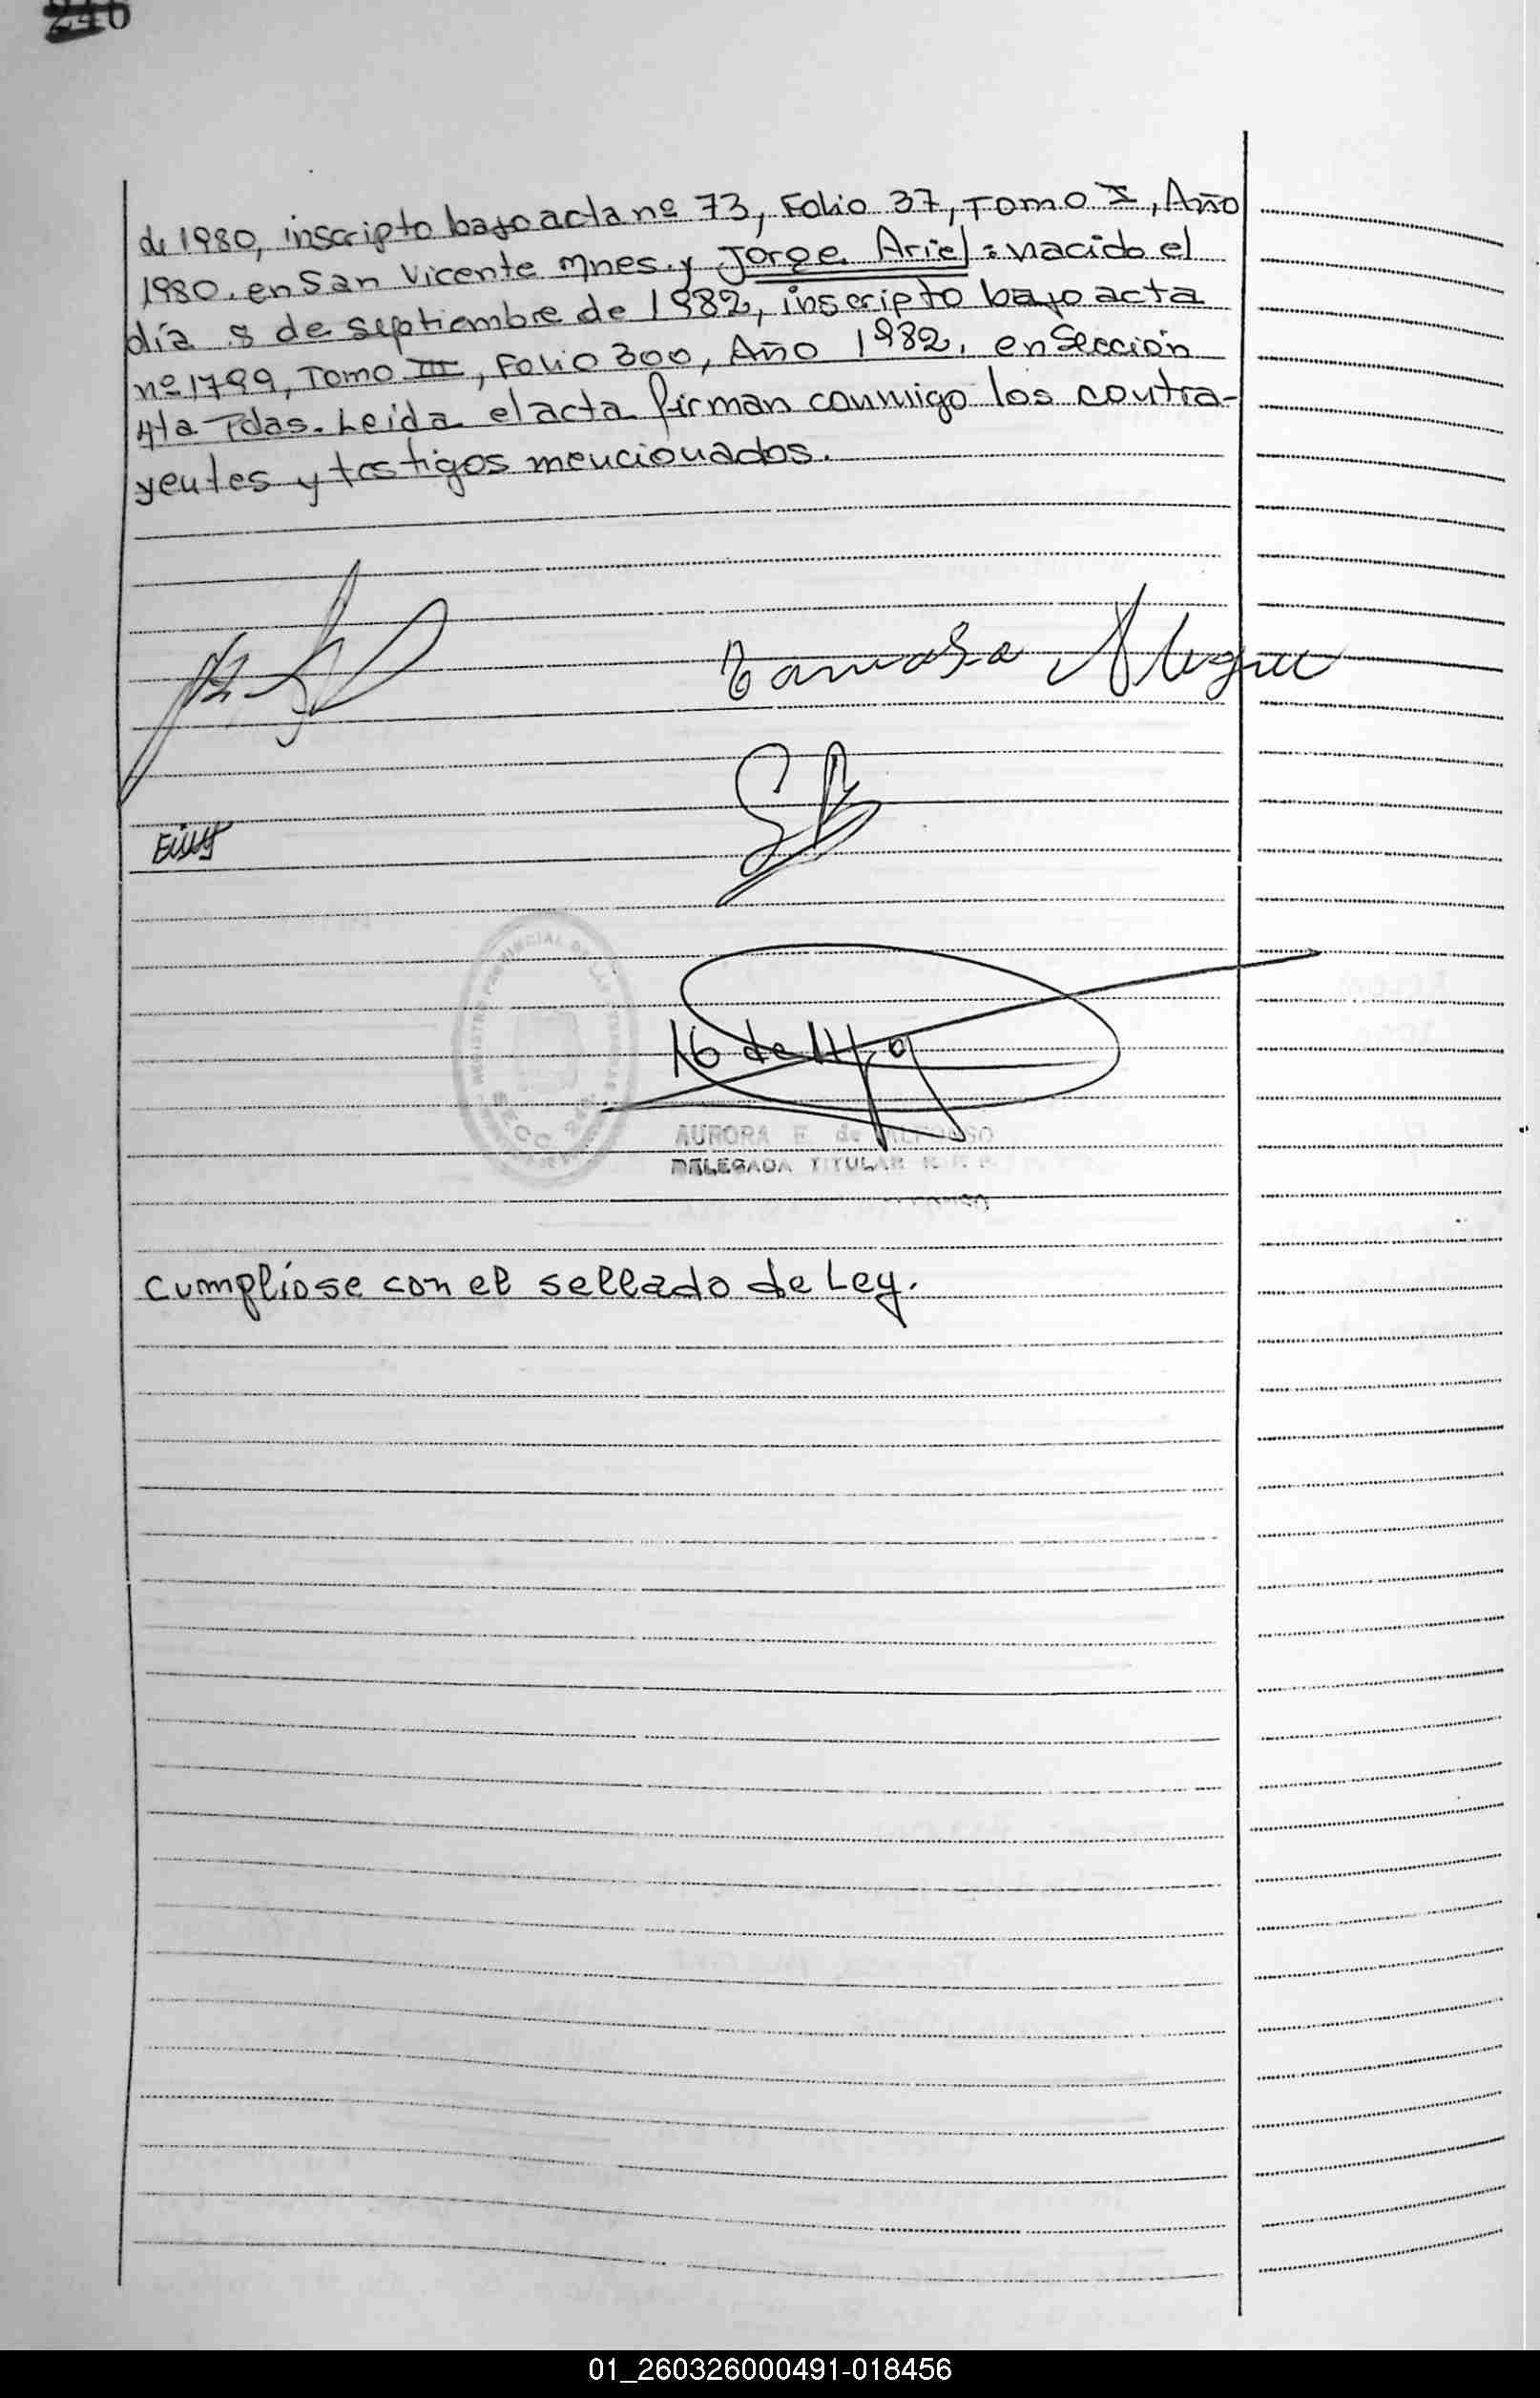 246
de 1980, inscripto bajo acta nº 73, Folio 37, Tomo I, Año
1980. en San Vicente Mnes. y Jorge Ariel: nacido el
día 8 de septiembre de 1982, inscripto bajo acta
nº 1799, Tomo III, Folio 300, Año 1982. en Sección
4ta Pdas. Leída el acta firman conmigo los contra-
yentes y testigos mencionados.
Tomasa Alegre
REGISTRO PROVINCIAL DE LAS
AURORA E. de ALFONSO
DELEGADA TITULAR R. P. P.
Cumplióse con el sellado de Ley.
01_260326000491-018456